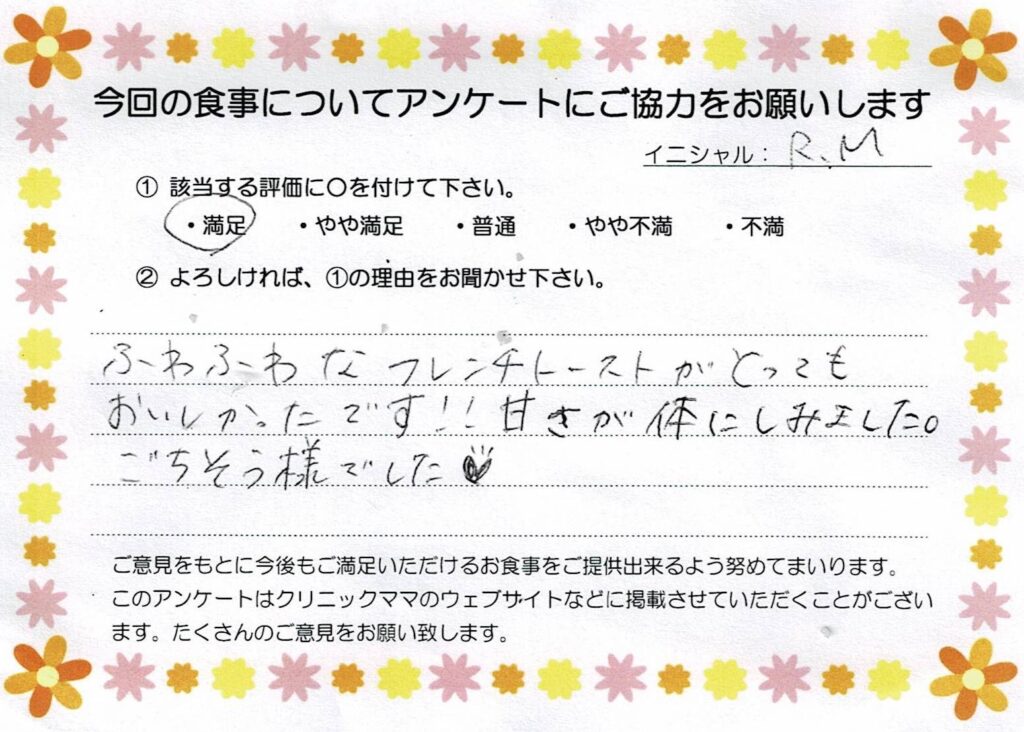 今回の食事についてアンケートにご協力をお願いします
イニシャル： R.M
① 該当する評価に〇を付けて下さい。
・満足 ・やや満足 ・普通 ・やや不満 ・不満
② よろしければ、①の理由をお聞かせ下さい。
ふわふわなフレンチトーストがとっても
おいしかったです!! 甘さが体にしみました。
ごちそう様でした♥
ご意見をもとに今後もご満足いただけるお食事をご提供出来るよう努めてまいります。
このアンケートはクリニックママのウェブサイトなどに掲載させていただくことがござい
ます。たくさんのご意見をお願い致します。